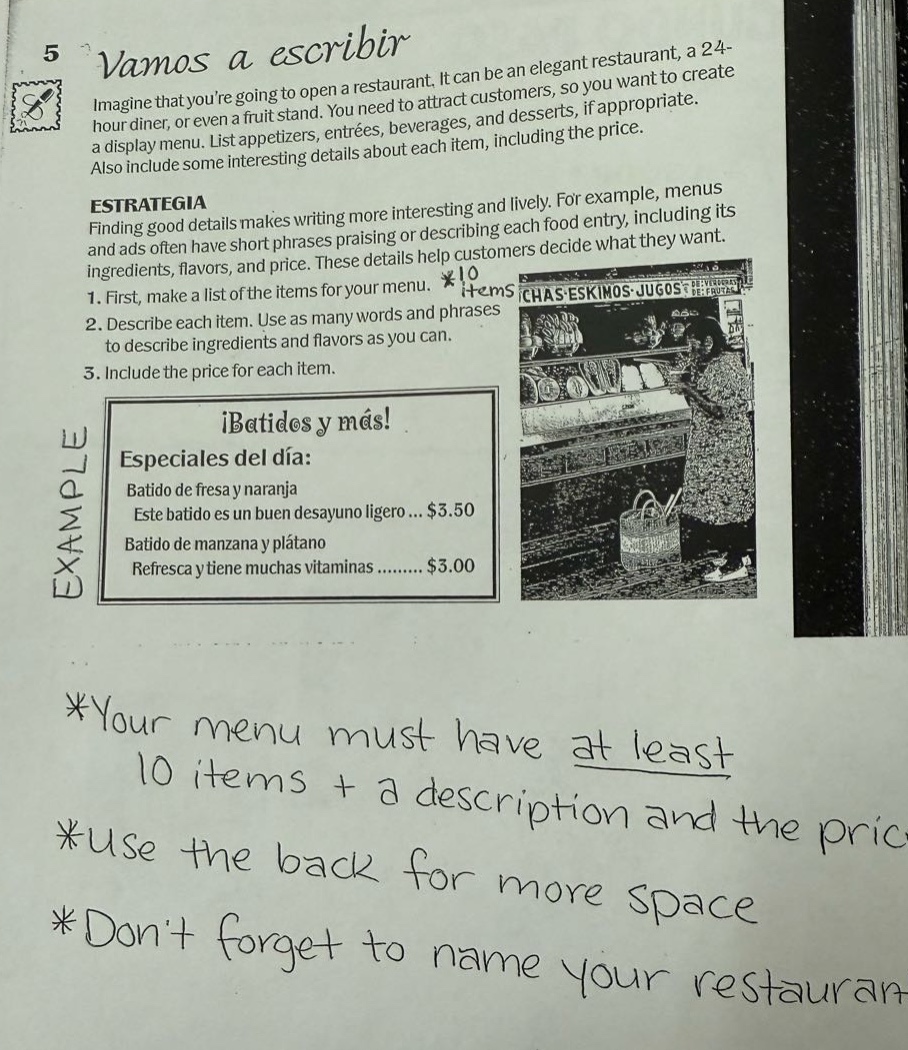 5 Vamos a escribir
Imagine that you're going to open a restaurant. It can be an elegant restaurant, a 24-
hour diner, or even a fruit stand. You need to attract customers, so you want to create
a display menu. List appetizers, entrées, beverages, and desserts, if appropriate.
Also include some interesting details about each item, including the price.
ESTRATEGIA
Finding good details makes writing more interesting and lively. For example, menus
and ads often have short phrases praising or describing each food entry, including its
ingredients, flavors, and price. These details help customers decide what they want.
1. First, make a list of the items for your menu. *10
items
2. Describe each item. Use as many words and phrases
to describe ingredients and flavors as you can.
3. Include the price for each item.
CHAS·ESKIMOS·JUGOS DE:VERDURAS
DE:FRUTAS
EXAMPLE
¡Batidos y más!
Especiales del día:
Batido de fresa y naranja
Este batido es un buen desayuno ligero ... $3.50
Batido de manzana y plátano
Refresca y tiene muchas vitaminas ......... $3.00
*Your menu must have at least
10 items + a description and the pric
*Use the back for more space
*Don't forget to name your restauran